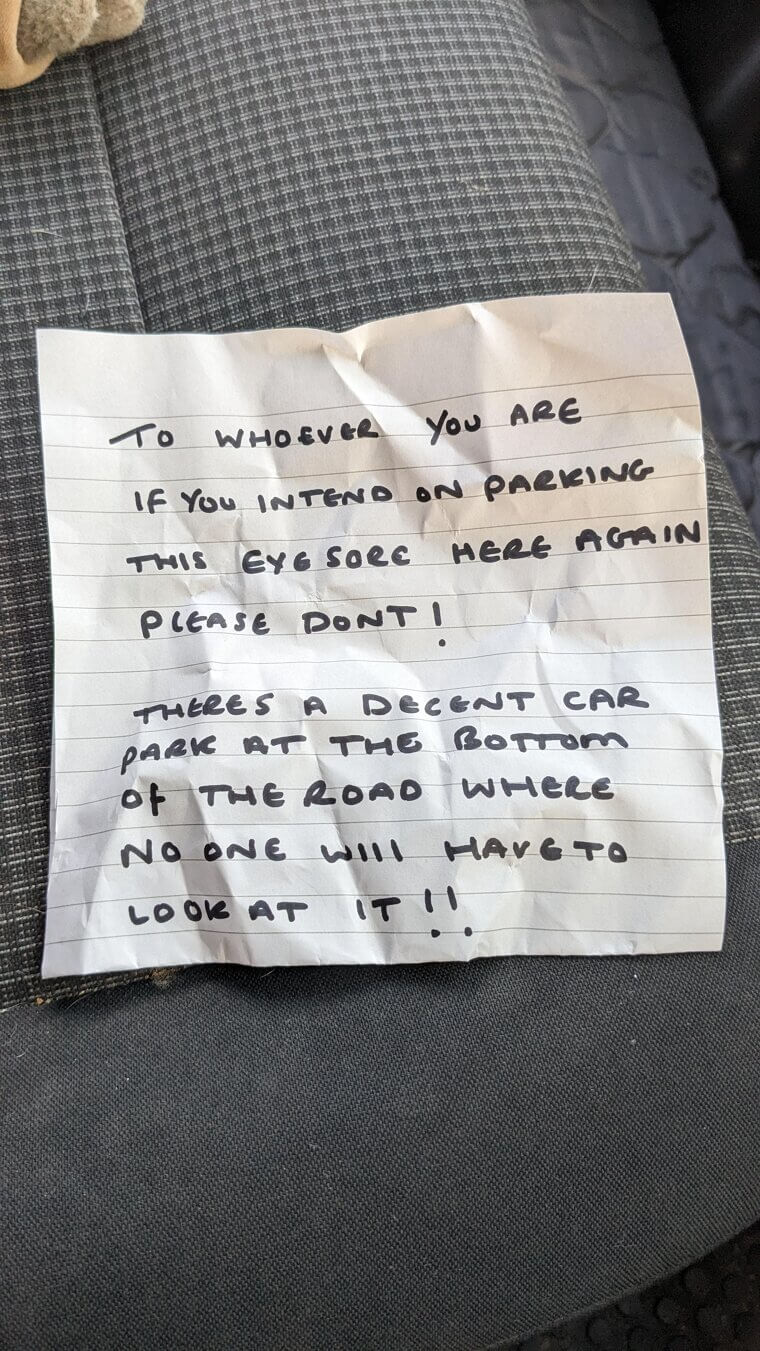 TO WHOEVER YOU ARE
IF YOU INTEND ON PARKING
THIS EYESORE HERE AGAIN
PLEASE DONT!
THERES A DECENT CAR
PARK AT THE BOTTOM
Of THE ROAD WHERE
NO ONE WIll HAVE TO
LOOK AT IT!!